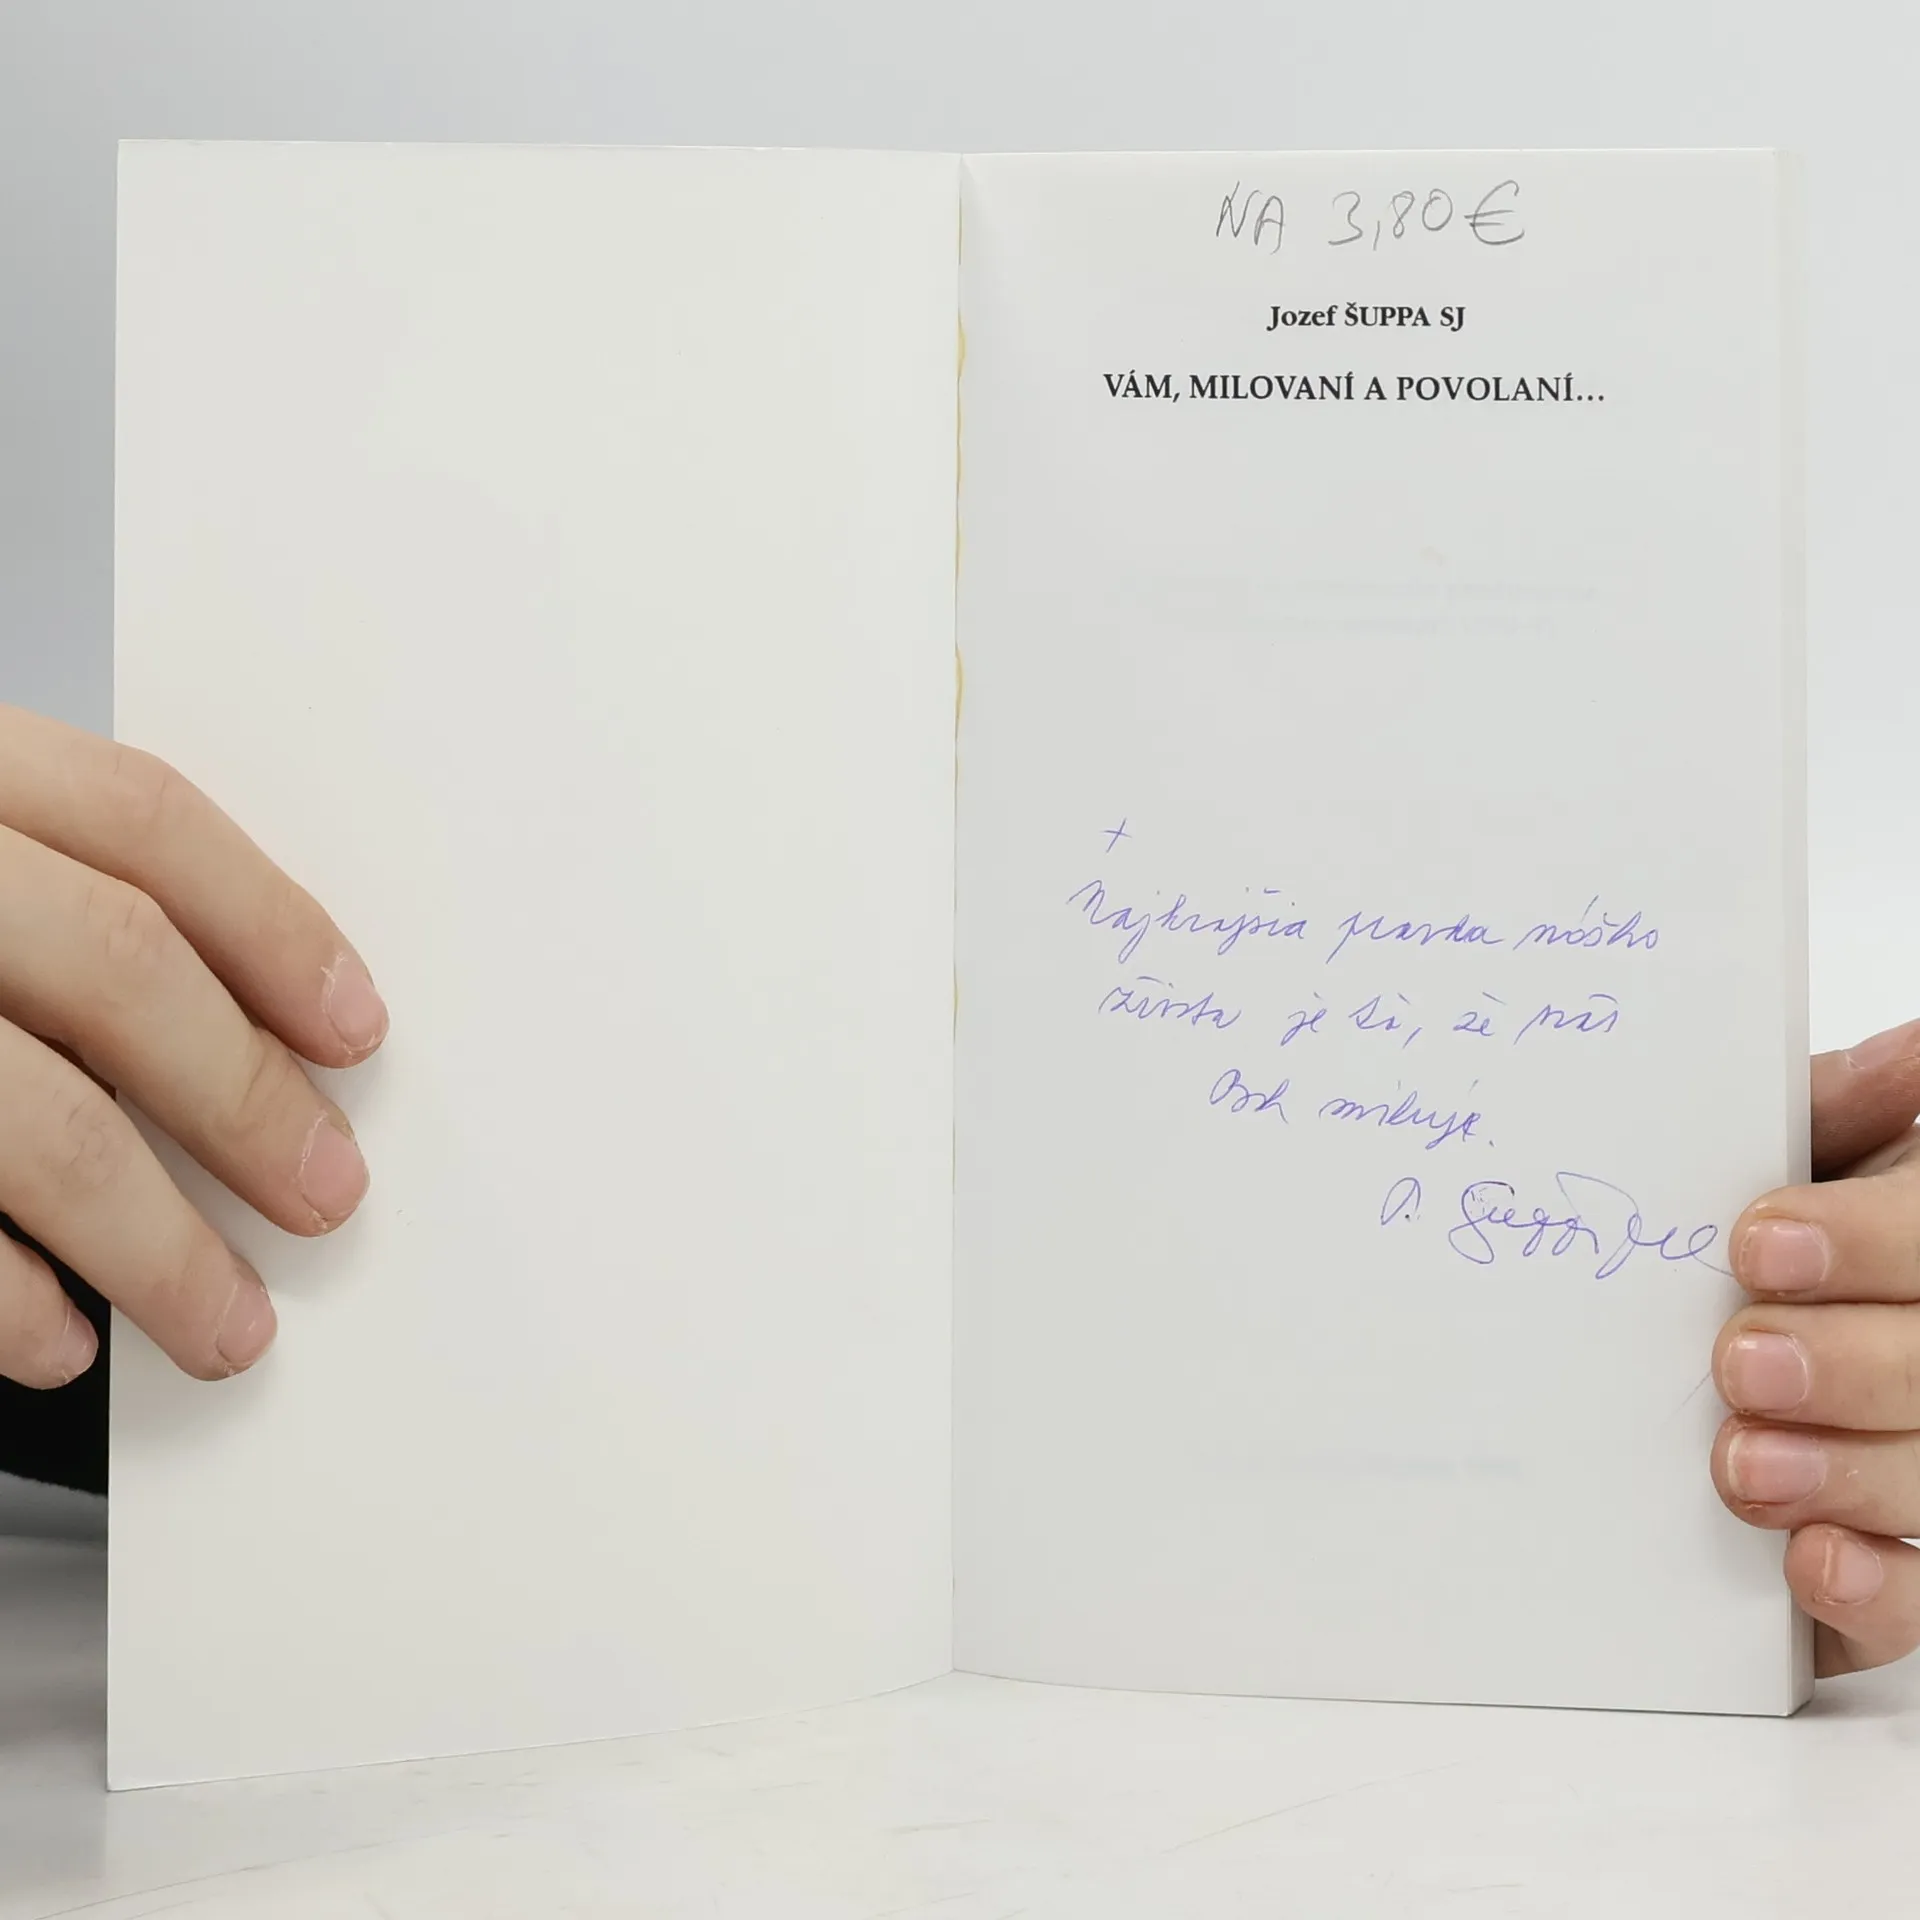 NA 3,80€
Jozef ŠUPPA SJ
VÁM, MILOVANÍ A POVOLANÍ...
+
Najkrajšia pravda nášho
života je tá, že nás
Boh miluje.
P. Šuppa